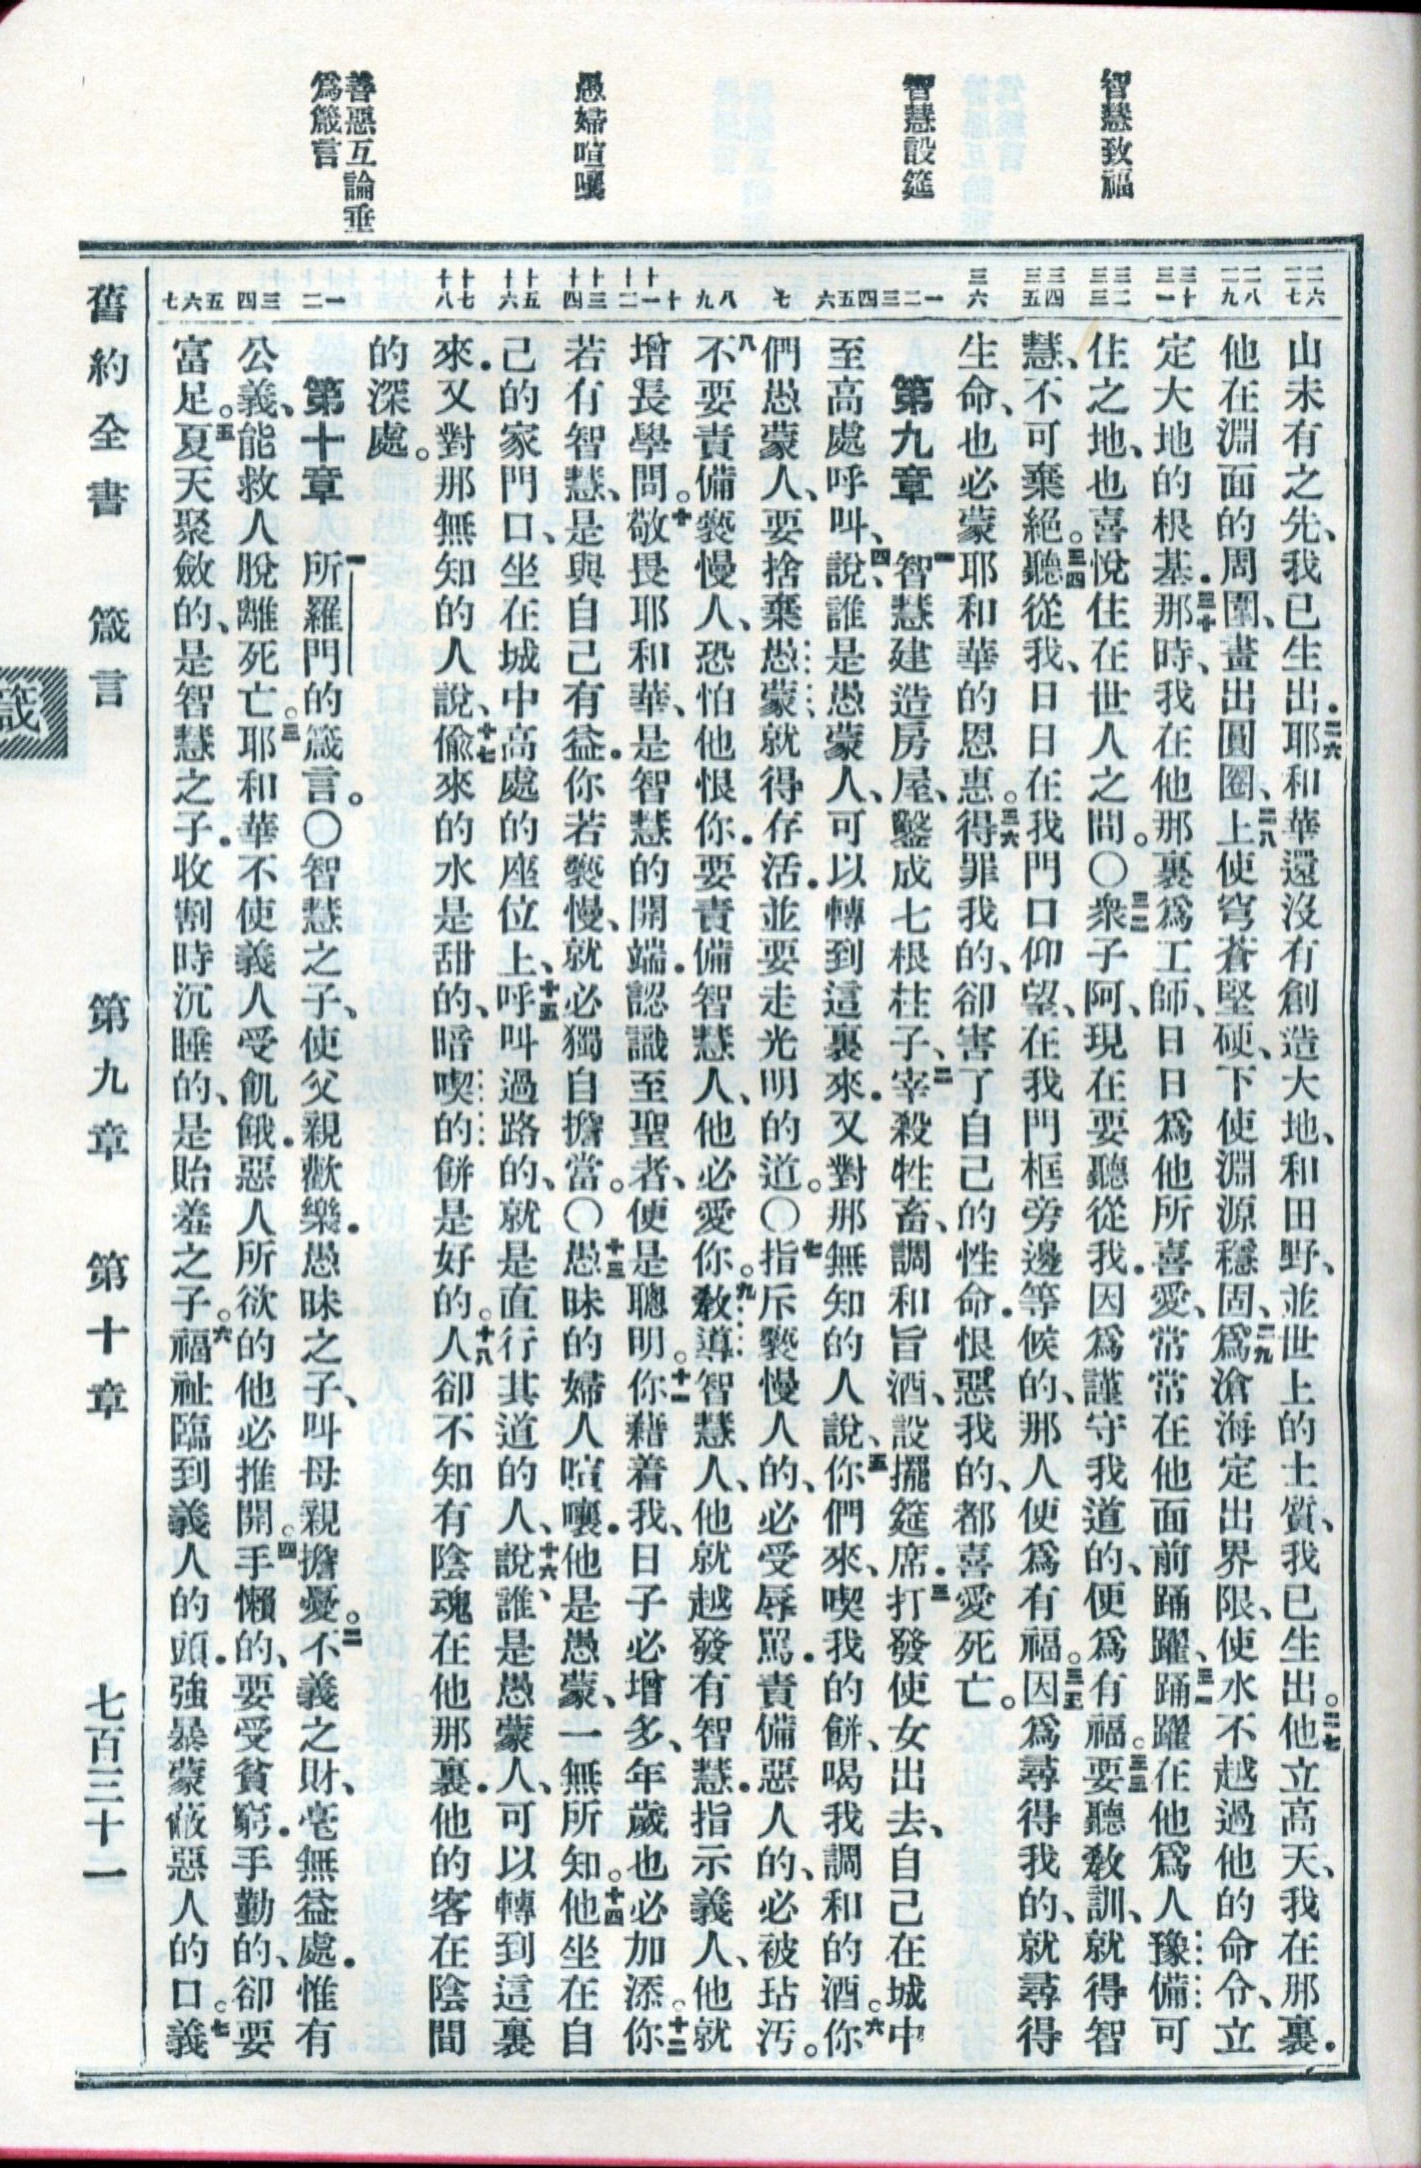 智慧致福
智慧設筵
愚婦喧嚷
善惡互論垂
爲箴言
二六 二七
二八 二九
三十 三一
三二 三三
三四 三五
三六
一二三
四五六
七
八九
十 十一 十二
十三 十四
十五 十六
十七 十八
一二
三四
五六七
山未有之先、我已生出.二六耶和華還沒有創造大地、和田野、並世上的土質、我已生出。二七他立高天、我在那裏.
他在淵面的周圍、畫出圓圈、二八上使穹蒼堅硬、下使淵源穩固、二九爲滄海定出界限、使水不越過他的命令、立
定大地的根基.三十那時、我在他那裏爲工師、日日爲他所喜愛、常常在他面前踊躍、三一踊躍在他爲人豫備可
住之地、也喜悅住在世人之間。〇三二衆子阿、現在要聽從我.因爲謹守我道的、便爲有福。三三要聽敎訓、就得智
慧、不可棄絕。三四聽從我、日日在我門口仰望、在我門框旁邊等候的、那人便爲有福。三五因爲尋得我的、就尋得
生命、也必蒙耶和華的恩惠。三六得罪我的、卻害了自己的性命.恨惡我的、都喜愛死亡。
第九章 一智慧建造房屋、鑿成七根柱子、二宰殺牲畜、調和旨酒、設擺筵席.三打發使女出去、自己在城中
至高處呼叫、四說、誰是愚蒙人、可以轉到這裏來.又對那無知的人說、五你們來、喫我的餅、喝我調和的酒。六你
們愚蒙人、要捨棄愚蒙、就得存活.並要走光明的道。〇七指斥褻慢人的、必受辱罵.責備惡人的、必被玷汚。
八不要責備褻慢人、恐怕他恨你.要責備智慧人、他必愛你。九敎導智慧人、他就越發有智慧.指示義人、他就
增長學問。十敬畏耶和華、是智慧的開端.認識至聖者、便是聰明。十一你藉着我、日子必增多、年歲也必加添。十二你
若有智慧、是與自己有益.你若褻慢、就必獨自擔當。〇十三愚昧的婦人喧嚷.他是愚蒙、一無所知。十四他坐在自
己的家門口、坐在城中高處的座位上、十五呼叫過路的、就是直行其道的人、十六說、誰是愚蒙人、可以轉到這裏
來.又對那無知的人說、十七偸來的水是甜的、暗喫的餅是好的。十八人卻不知有陰魂在他那裏.他的客在陰間
的深處。
第十章 一所羅門的箴言。〇智慧之子、使父親歡樂.愚昧之子、叫母親擔憂。二不義之財、毫無益處.惟有
公義、能救人脫離死亡。三耶和華不使義人受飢餓.惡人所欲的他必推開。四手懶的、要受貧窮.手勤的、卻要
富足。五夏天聚斂的、是智慧之子.收割時沉睡的、是貽羞之子。六福祉臨到義人的頭.強暴蒙蔽惡人的口。七義
舊約全書 箴言 第九章 第十章 七百三十一
箴